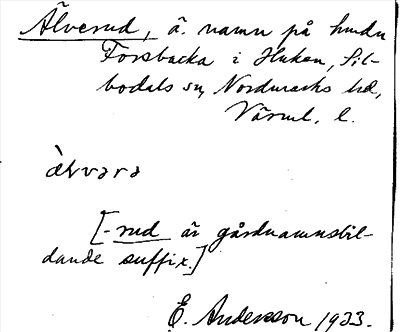 Älverud, ä. namn på hmdn
Forsbacka i Huken, Sil-
bodals sn, Nordmarks hd,
Värml. l.
[-rud är gårdnamnsbil-
dande suffix.]
E. Andersson 1933.